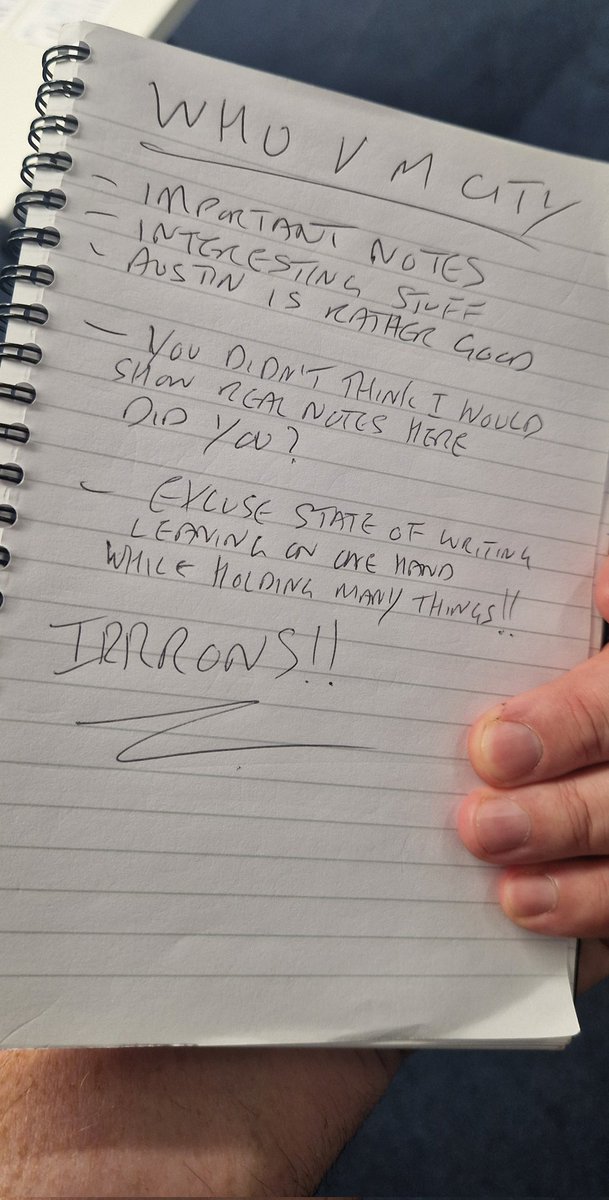 WHU V M CITY
- IMPORTANT NOTES
- INTERESTING STUFF
- AUSTIN IS RATHER GOOD
- YOU DIDN'T THINK I WOULD
SHOW REAL NOTES HERE
DID YOU?
- EXCUSE STATE OF WRITING
LEANING ON ONE HAND
WHILE HOLDING MANY THINGS!!
IRRRONS!!